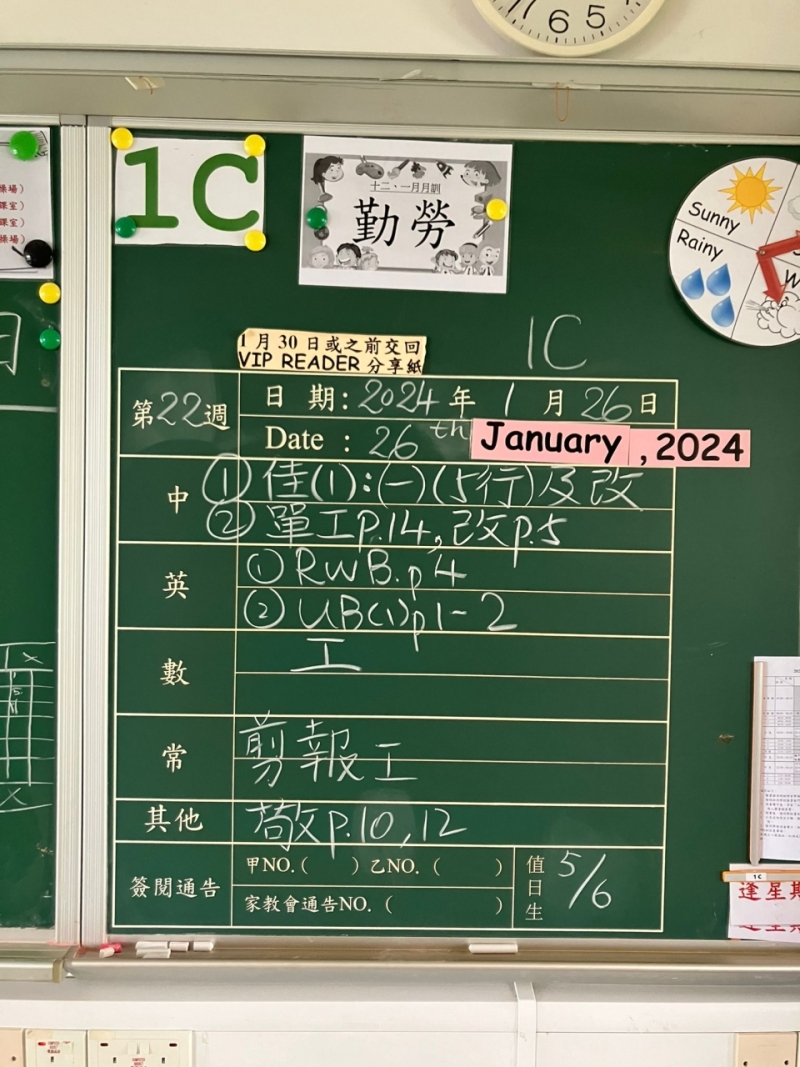 6 5
1C
十二、一月月訓
勤勞
Sunny
Rainy
操場)
課室)
課室)
操場)
日
1月30日或之前交回
VIP READER 分享紙
1C
第22週
日 期：2024 年 1 月 26 日
Date : 26th January, 2024
中
① 佳(1):(一)(5行)及改
② 單工p.14,改p.5
英
① RWB.p4
② UB(1)p1-2
數
工
常
剪報工
其他
p.10,12
簽閱通告
甲NO.( ) 乙NO.( )
家教會通告NO.( )
值日生
5/6
1C
逢星期